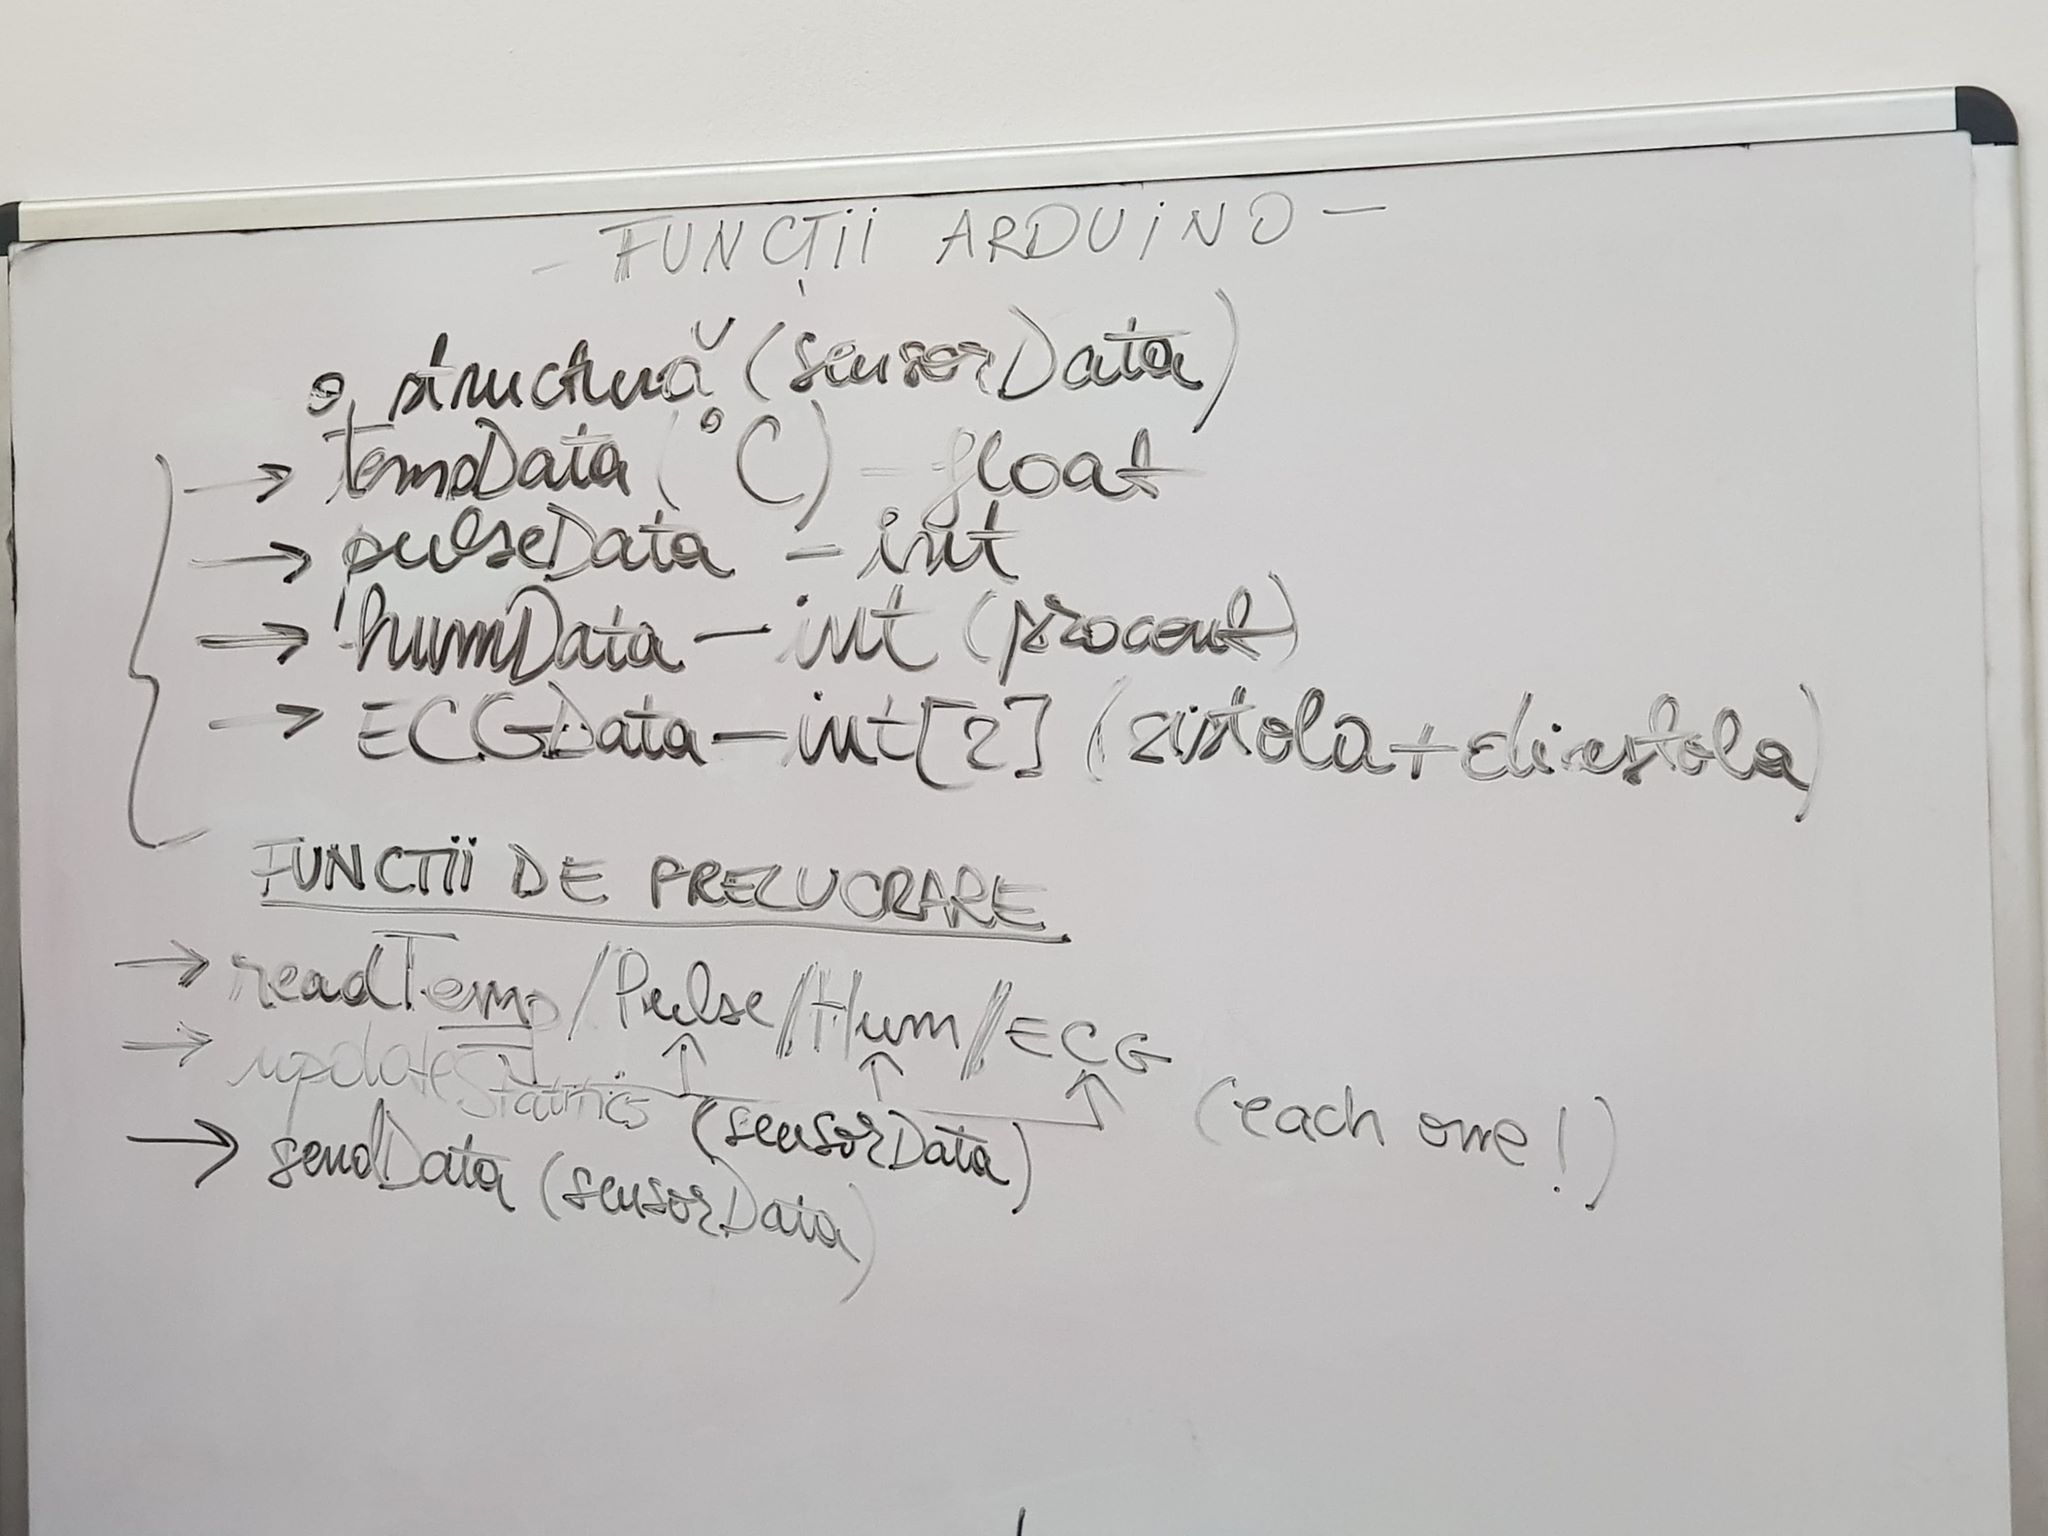 - FUNCȚII ARDUINO -
o structură (sensorData)
→ tempData (°C) - float
→ pulseData - int
→ humData - int (procent)
→ ECGData - int[2] (sistola + diastola)
FUNCTII DE PRELUCRARE
→ readTemp / Pulse / Hum / ECG
→ updateStatistics (sensorData) (each one!)
→ sendData (sensorData)